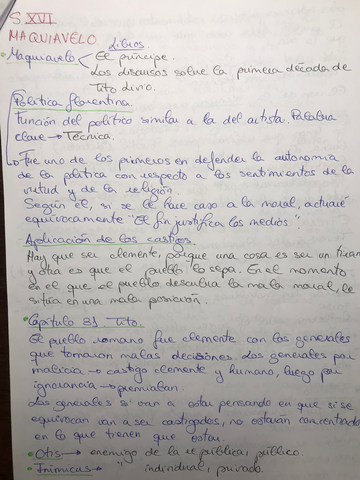 S.XVI
MAQUIAVELO
Libros
• Maquiavelo < El príncipe.
Los discursos sobre la primera década de
Tito Livio.
Política florentina
Función del político similar a la del artista. Palabra
clave → Técnica
→ Fue uno de los primeros en defender la autonomía
de la política con respecto a los sentimientos de la
virtud y de la religión.
Según él, si se le hace caso a la moral, actuaré
equívocamente "El fin justifica los medios"
Aplicación de los castigos.
Hay que ser clemente, porque una cosa es ser un tirano
y otra es que el pueblo lo sepa. En el momento
en el que el pueblo descubra la mala moral, le
sitúa en una mala posición.
• Capítulo 31 Tito.
El pueblo romano fue clemente con los generales
que tomaron malas decisiones. Los generales por
malicia → castigo clemente y humano, luego por
ignorancia → premiaban.
Los generales si van a estar pensando en que si se
equivocan van a ser castigados, no estarán concentrados
en lo que tienen que estar.
• Otis → enemigo de la república, público.
• Inimicus → " individual, privado.